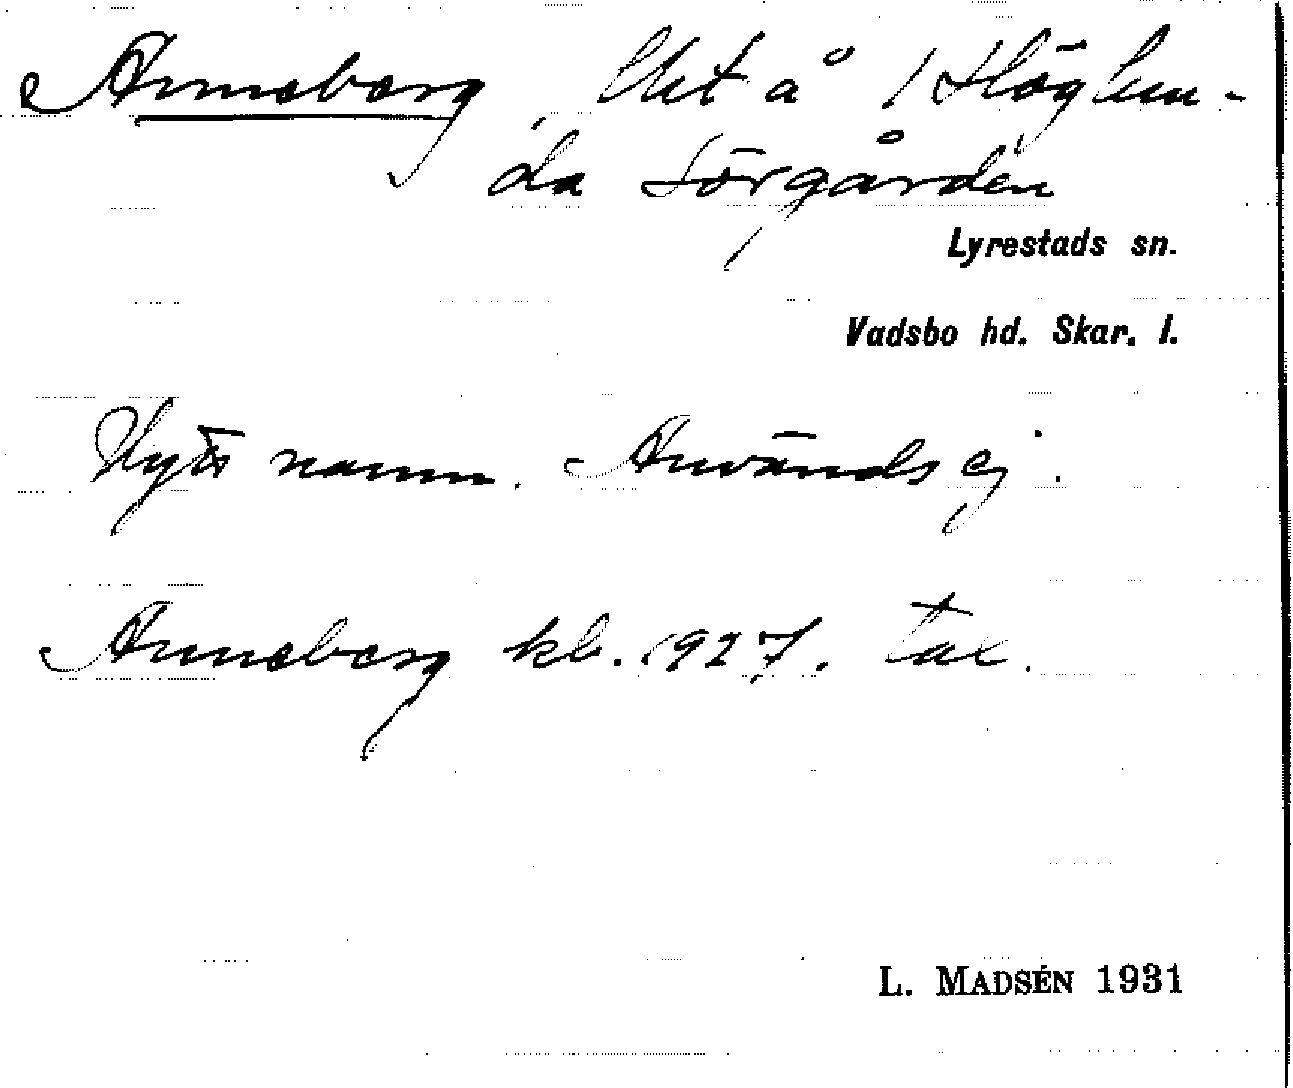 Anneberg, lht å 1 Höglun-
da Sörgården
Lyrestads sn.
Vadsbo hd. Skar. l.
Nytt namn. Används ej.
Anneberg kl. 1927. tax.
L. MADSÉN 1931